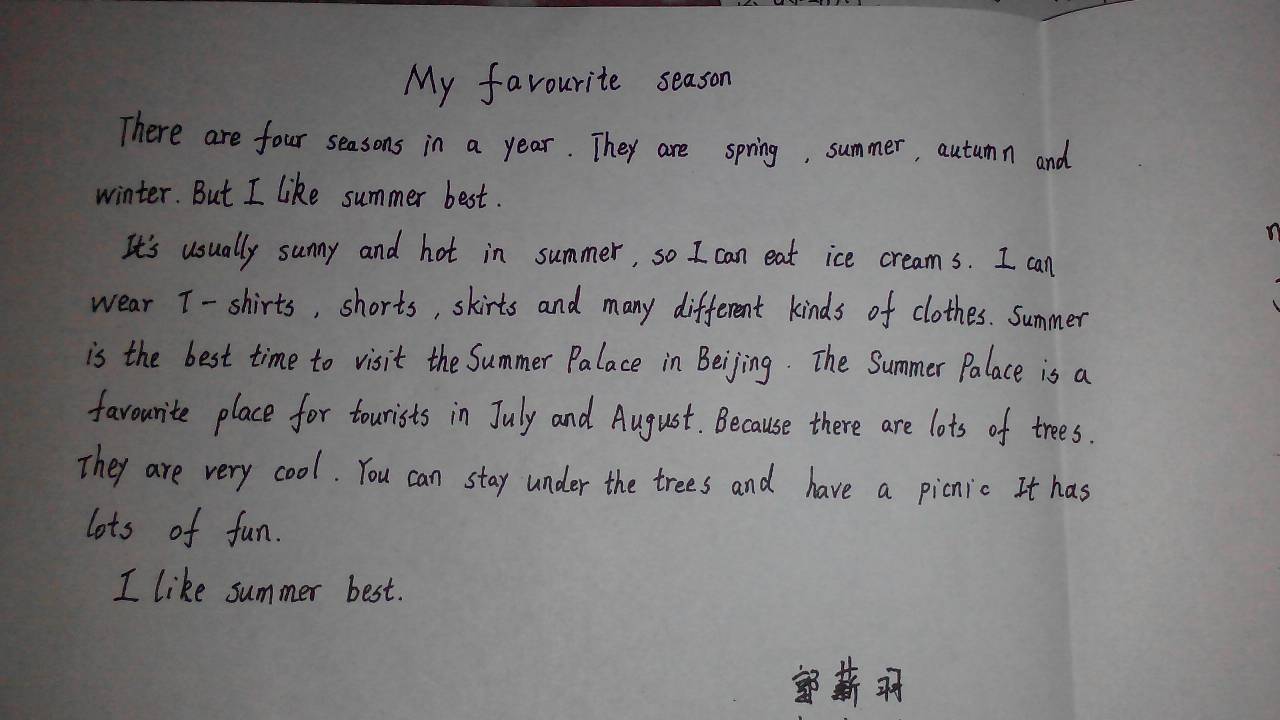 My favourite season
There are four seasons in a year. They are spring, summer, autumn and
winter. But I like summer best.
It's usually sunny and hot in summer, so I can eat ice creams. I can
wear T-shirts, shorts, skirts and many different kinds of clothes. Summer
is the best time to visit the Summer Palace in Beijing. The Summer Palace is a
favourite place for tourists in July and August. Because there are lots of trees.
They are very cool. You can stay under the trees and have a picnic It has
lots of fun.
I like summer best.
郭薪羽